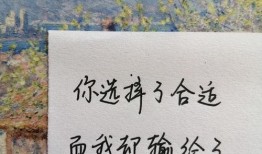 你选择了合适
而我却输给了